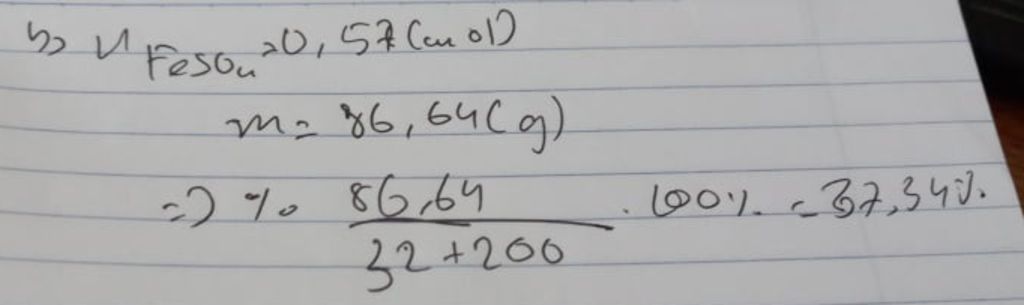 b, n FeSO4 = 0,57 (mol)
m = 86,64 (g)
=> % 86,64 / 32+200 . 100% = 37,34%.